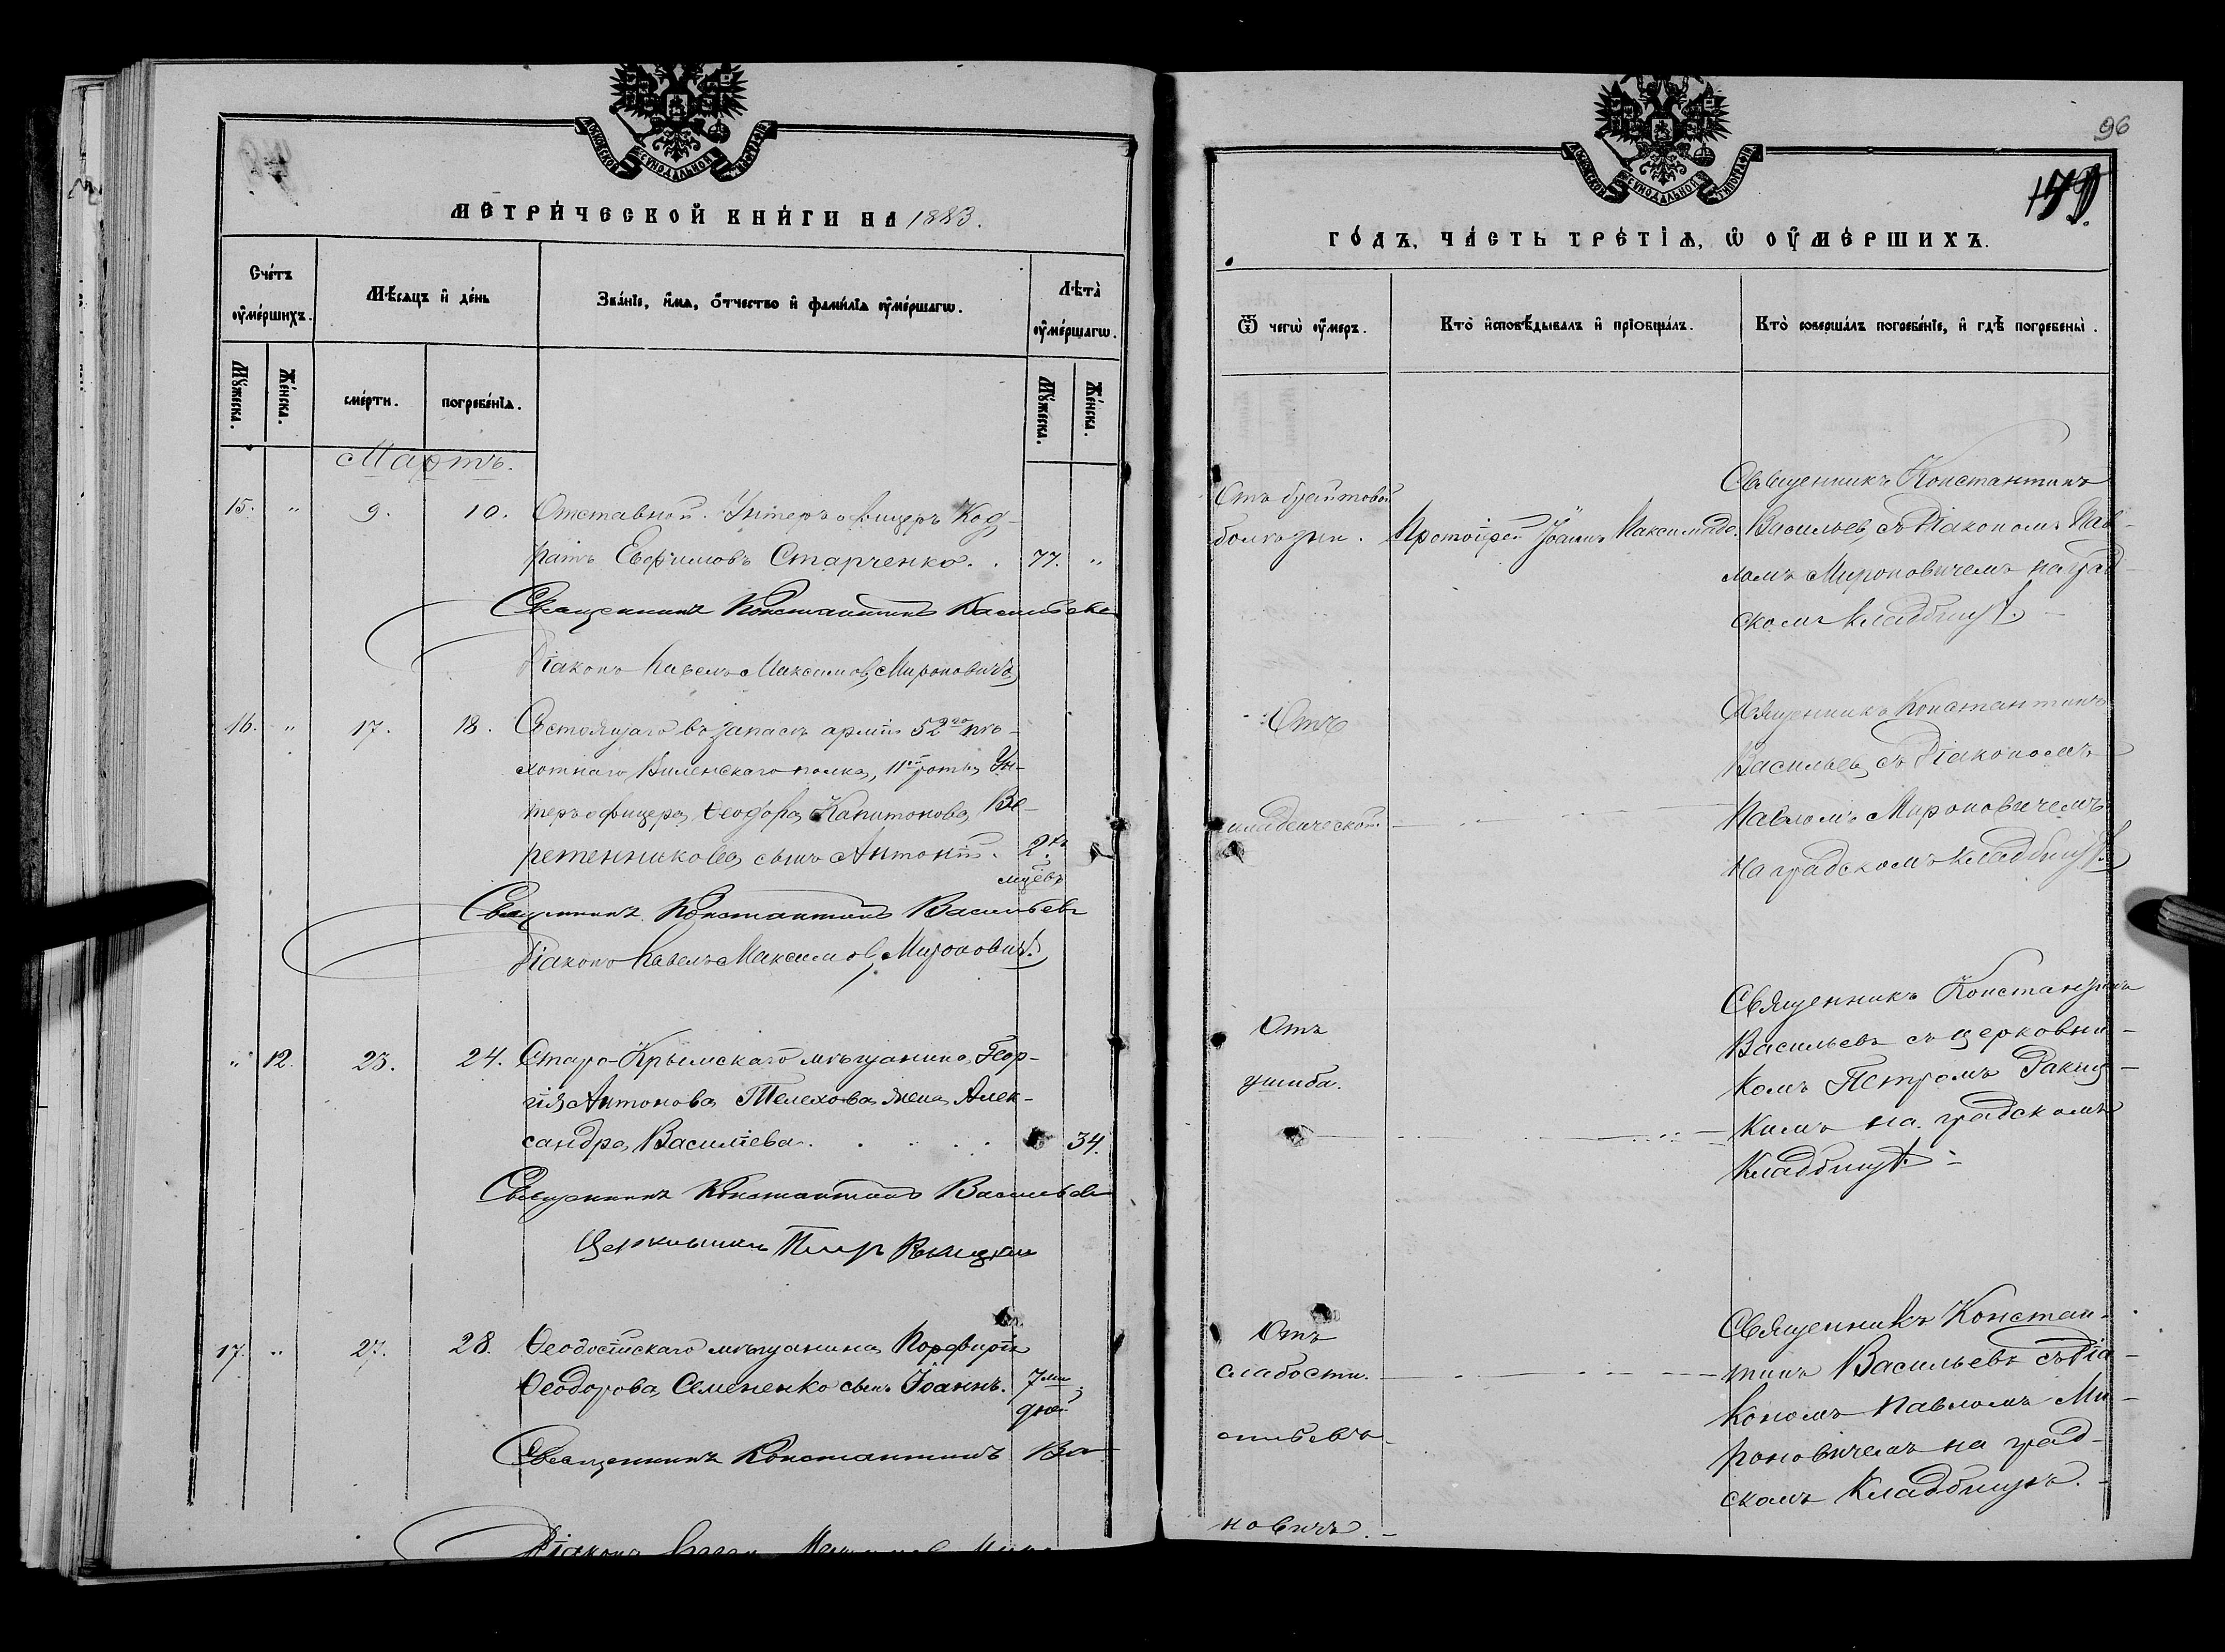 МОСКОВСКОЙ СѴНОДАЛЬНОЙ ТИПОГРАФІИ
МЕТРИ́ЧЕСКОЙ КНИ́ГИ НА 1883.
Сче́тъ оу҆ме́ршихъ.
Мѣ́сяцъ и҆ де́нь
Зва́нїе, и҆́мя, ѻ҆́тчество и҆ фами́лїя оу҆ме́ршагѡ.
Лѣта̀ оу҆ме́ршагѡ.
Мꙋ́жеска.
Же́нска.
сме́рти.
погребе́нїя.
Мꙋ́жеска.
Же́нска.
Мартъ.
15. " 9. 10. Отставной Унтеръ офицеръ Код-
ратъ Евфимовъ Старченко. . 77. "
Священникъ Константинъ Васильевъ
Діаконъ Павелъ Максимовъ Мироновичъ
16. " 17. 18. Состоящаго въ запасѣ арміи 52го пѣ-
хотнаго Виленскаго полка, 11й роты Ун-
теръ офицера Ѳеодора Капитонова Ве-
ретенникова сынъ Антоній. 2хъ
мцевъ
Священникъ Константинъ Васильевъ
Діаконъ Павелъ Максимовъ Мироновичъ.
" 12. 23. 24. Старо-Крымскаго мѣщанина Геор-
гія Антонова Телехова жена Алек-
сандра Василіева . . . . . 34.
Священникъ Константинъ Васильевъ
Церковникъ Петръ Ракицкій
17. " 27. 28. Ѳеодосійскаго мѣщанина Порфирія
Ѳеодорова Семененко сынъ Іоаннъ. 7ми
дней
Священникъ Константинъ Ва-
Діаконъ Павелъ Максимовъ Миро-
96
МОСКОВСКОЙ СѴНОДАЛЬНОЙ ТИПОГРАФІИ
ГО́ДЪ, ЧА́СТЬ ТРЕ́ТІѦ, Ѡ҆ ОУ҆МЕ́РШИХЪ.
Ѿ чегѡ̀ оу҆́меръ.
Кто̀ и҆сповѣ́дывалъ и҆ прїобща́лъ.
Кто̀ соверша́лъ погребе́нїе, и҆ гдѣ̀ погребены̀.
болѣзни. Протоіерей Іоаннъ
Священникъ Константинъ
Васильевъ съ Діакономъ Пав-
ломъ Мироновичемъ на град-
скомъ кладбищѣ. -
Отъ
младенческой
Священникъ Константинъ
Васильевъ съ Діакономъ
Павломъ Мироновичемъ
на градскомъ кладбищѣ.
Отъ
ушиба.
Священникъ Константинъ
Васильевъ съ церковни-
комъ Петромъ Ракиц-
кимъ на градскомъ
Кладбищѣ. -
Отъ
слабости.
Священникъ Констан-
тинъ Васильевъ съ Діа-
кономъ Павломъ Ми-
роновичемъ на град-
скомъ Кладбищѣ. -
сильевъ
новичъ. -